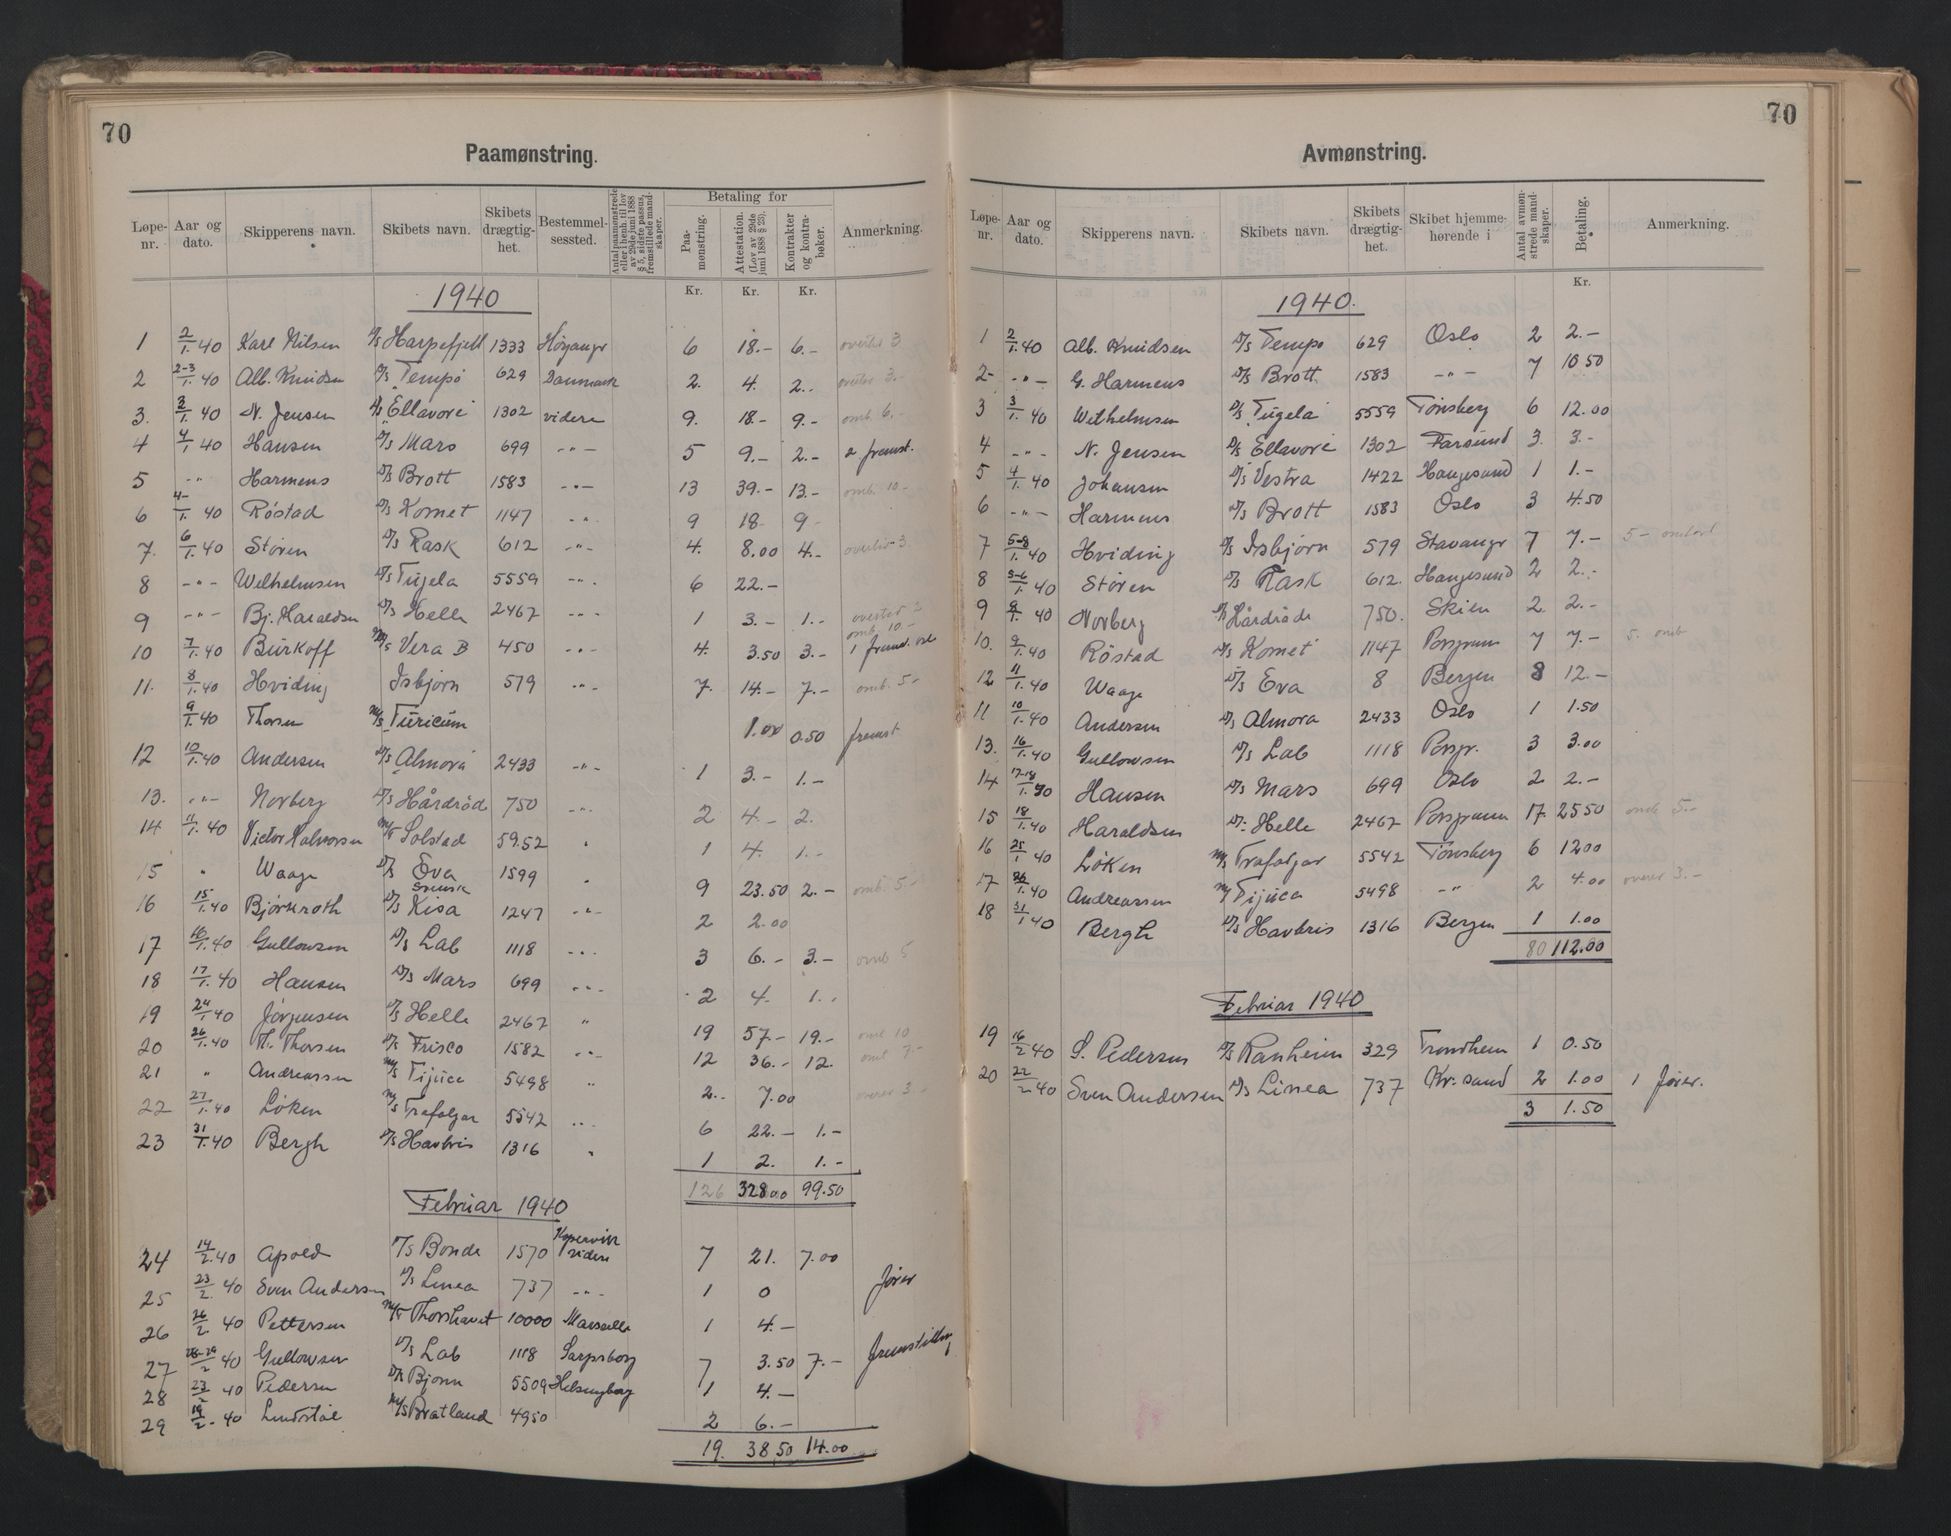 70
Paamønstring.
Løpe-nr. Aar og dato. Skipperens navn. Skibets navn. Skibets drægtig-het. Bestemmel-sessted. Antal paamønstrede eller i henh. til lov av 29de juni 1888 § 5, sidste passus, fremstillede mand-skaper. Betaling for Paa-mønstring. Attestation. (Lov av 29de juni 1888 § 23). Kontrakter og kontra-bøker. Anmerkning.
Kr. Kr. Kr.
1940
1 2/1.40 Karl Nilsen D/s Harpefjell 1333 Höyangr 6 18.- 6.- overtid 3
2 2-3/1.40 Alb. Knudsen D/s Tempo 629 Danmark 2. 4. 2.- overtid 3.-
3. 3/1.40 N. Jensen D/s Ellavore 1302 videre 9. 18.- 9.- omb. 6.-
4 4/1.40 Hansen D/s Mars 699 -"- 5 9.- 2.- 2 fremst.
5 -"- Harmens D/s Brott 1583 -"- 13 39.- 13.- omb. 10-
6 4-/1.40 Røstad D/s Komet 1147 -"- 9 18- 9-
7. 6/1.40 Støren D/s Rask 612 -"- 4. 8.00 4.- overtid 3
8 -"- Wilhelmsen D/s Tugela 5559 -"- 6 22.-
9 -"- Bj. Haraldsen D/s Helle 2467 -"- 1 3.- 1.- overtid 2
omb. 10.-
10 7/1.40 Burkoff M/s Vera B 450 -"- 4. 3.50 3.- 1 fremst.
11. 8/1.40 Hviding Isbjørn 579 -"- 7. 14.- 7.- omb. 5-
9/1.40 Thorsen M/s Turicum 1.00 0.50 fremst
12 10/1.40 Andersen D/s Almora 2433 -"- 1 3.- 1.-
13. -"- Norberg D/s Hårdråde 750 -"- 2 4.- 2.
14 11/1.40 Victor Halvorsen M/T Solstad 5952 " 1 4. 1.-
15 " Waage D/s Eva 1599 " 9 23.50 2.- omb. 5-
16 15/1.40 Bjørkroth Svensk D/s Kisa 1247 -"- 2 2.00
17 16/1.40 Gullowsen D/s Lab 1118 -"- 3 6.- 3.- omb 5
18 17/1.40 Hansen D/s Mars 699 -"- 2 4. 1.-
19 24/1.40 Jörgensen D/s Helle 2467 " 19 57.- 19.- omb 10
20 26/1.40 Th. Thorsen D/s Frisco 1582 -"- 12 36.- 12. omb 7-
21 " Andreassen M/s Tijuca 5498 " 2.- 7.00 overt 3-
22 27/1.40 Løken M/s Trafalgar 5542 -"- 6 22.- 1.-
23 31/1.40 Bergh D/s Havbris 1316 " 1 2. 1.-
126 328.00 99.50
Februar 1940
24 14/2.40 Apold D/s Bonde 1570 Kopervik videre 7 21. 7.00
25 23/2.40 Sven Andersen D/s Linea 737 -"- 1 0
26 26/2.40 Pettersen M/T Thorshavet 10000 Marseille 1 4.-
27 28-29/2 40 Gullowsen D/s Lab 1118 Sarpsborg 7 3.50 7.- fremstilling
28 23/2 40 Pedersen D/s Bjønn 5509 Helsingborg 1 4.-
29 19/2-40 M/s Bratland 4950 2 6.-
19. 38.50 14.00
70
Avmønstring.
Løpe-nr. Aar og dato. Skipperens navn. Skibets navn. Skibets drægtig-het. Skibet hjemme-hørende i Antal avmøn-strede mand-skaper. Betaling. Anmerkning.
Kr.
1940.
1 2/1.40 Alb. Knudsen D/s Tempo 629 Oslo 2 2.-
2- -"- G. Harmens D/s Brott 1583 -"- 7 10.50
3 3/1.40 Wilhelmsen D/s Tugela 5559 Tønsberg 6 12.00
4 -"- N. Jensen D/s Ellavore 1302 Farsund 3. 3.-
5 4/1.40 Johansen D/s Vestra 1422 Haugesund 1 1.-
6 -"- Harmens D/s Brott 1583 Oslo 3 4.50
7 5-8/1.40 Hviding D/s Isbjørn 579 Stavanger 7 7.- 5-
8 5-6/1.40 Støren D/s Rask 612. Haugesund 2 2.-
9 8/1.40 Norberg D/s Hårdråde 750. Skien 2. 2.-
10. 9/1.40 Røstad D/s Komet 1147 Porsgrunn 7 7.- 5. omb
12 11/1.40 Waage D/s Eva 8 Bergen 8 12.-
11 10/1.40 Andersen D/s Almora 2433 Oslo 1 1.50
13. 16/1.40 Gullowsen D/s Lab 1118 Porsgr. 3 3.00
14 17-18/1.40 Hansen D/s Mars 699 Oslo 2 2.-
15 18/1.40 Haraldsen D/s Helle 2467 Porsgrunn 17. 25.50 omb 5.-
16 25/1 40 Løken M/s Trafalgar 5542 Tønsberg 6 12.00
17 26/1.40 Andreassen M/s Tijuca 5498 -"- 2 4.00 overt 3.-
18 31/1.40 Bergh D/s Havbris 1316 Bergen 1 1.00
80 112.00
Februar 1940
19 16/2.40 S. Pedersen D/s Ranheim 329 Trondheim 1 0.50
20 22/2.40 Sven Andersen D/s Linea 737 Kr.sand 2 1.00 1
3 1.50